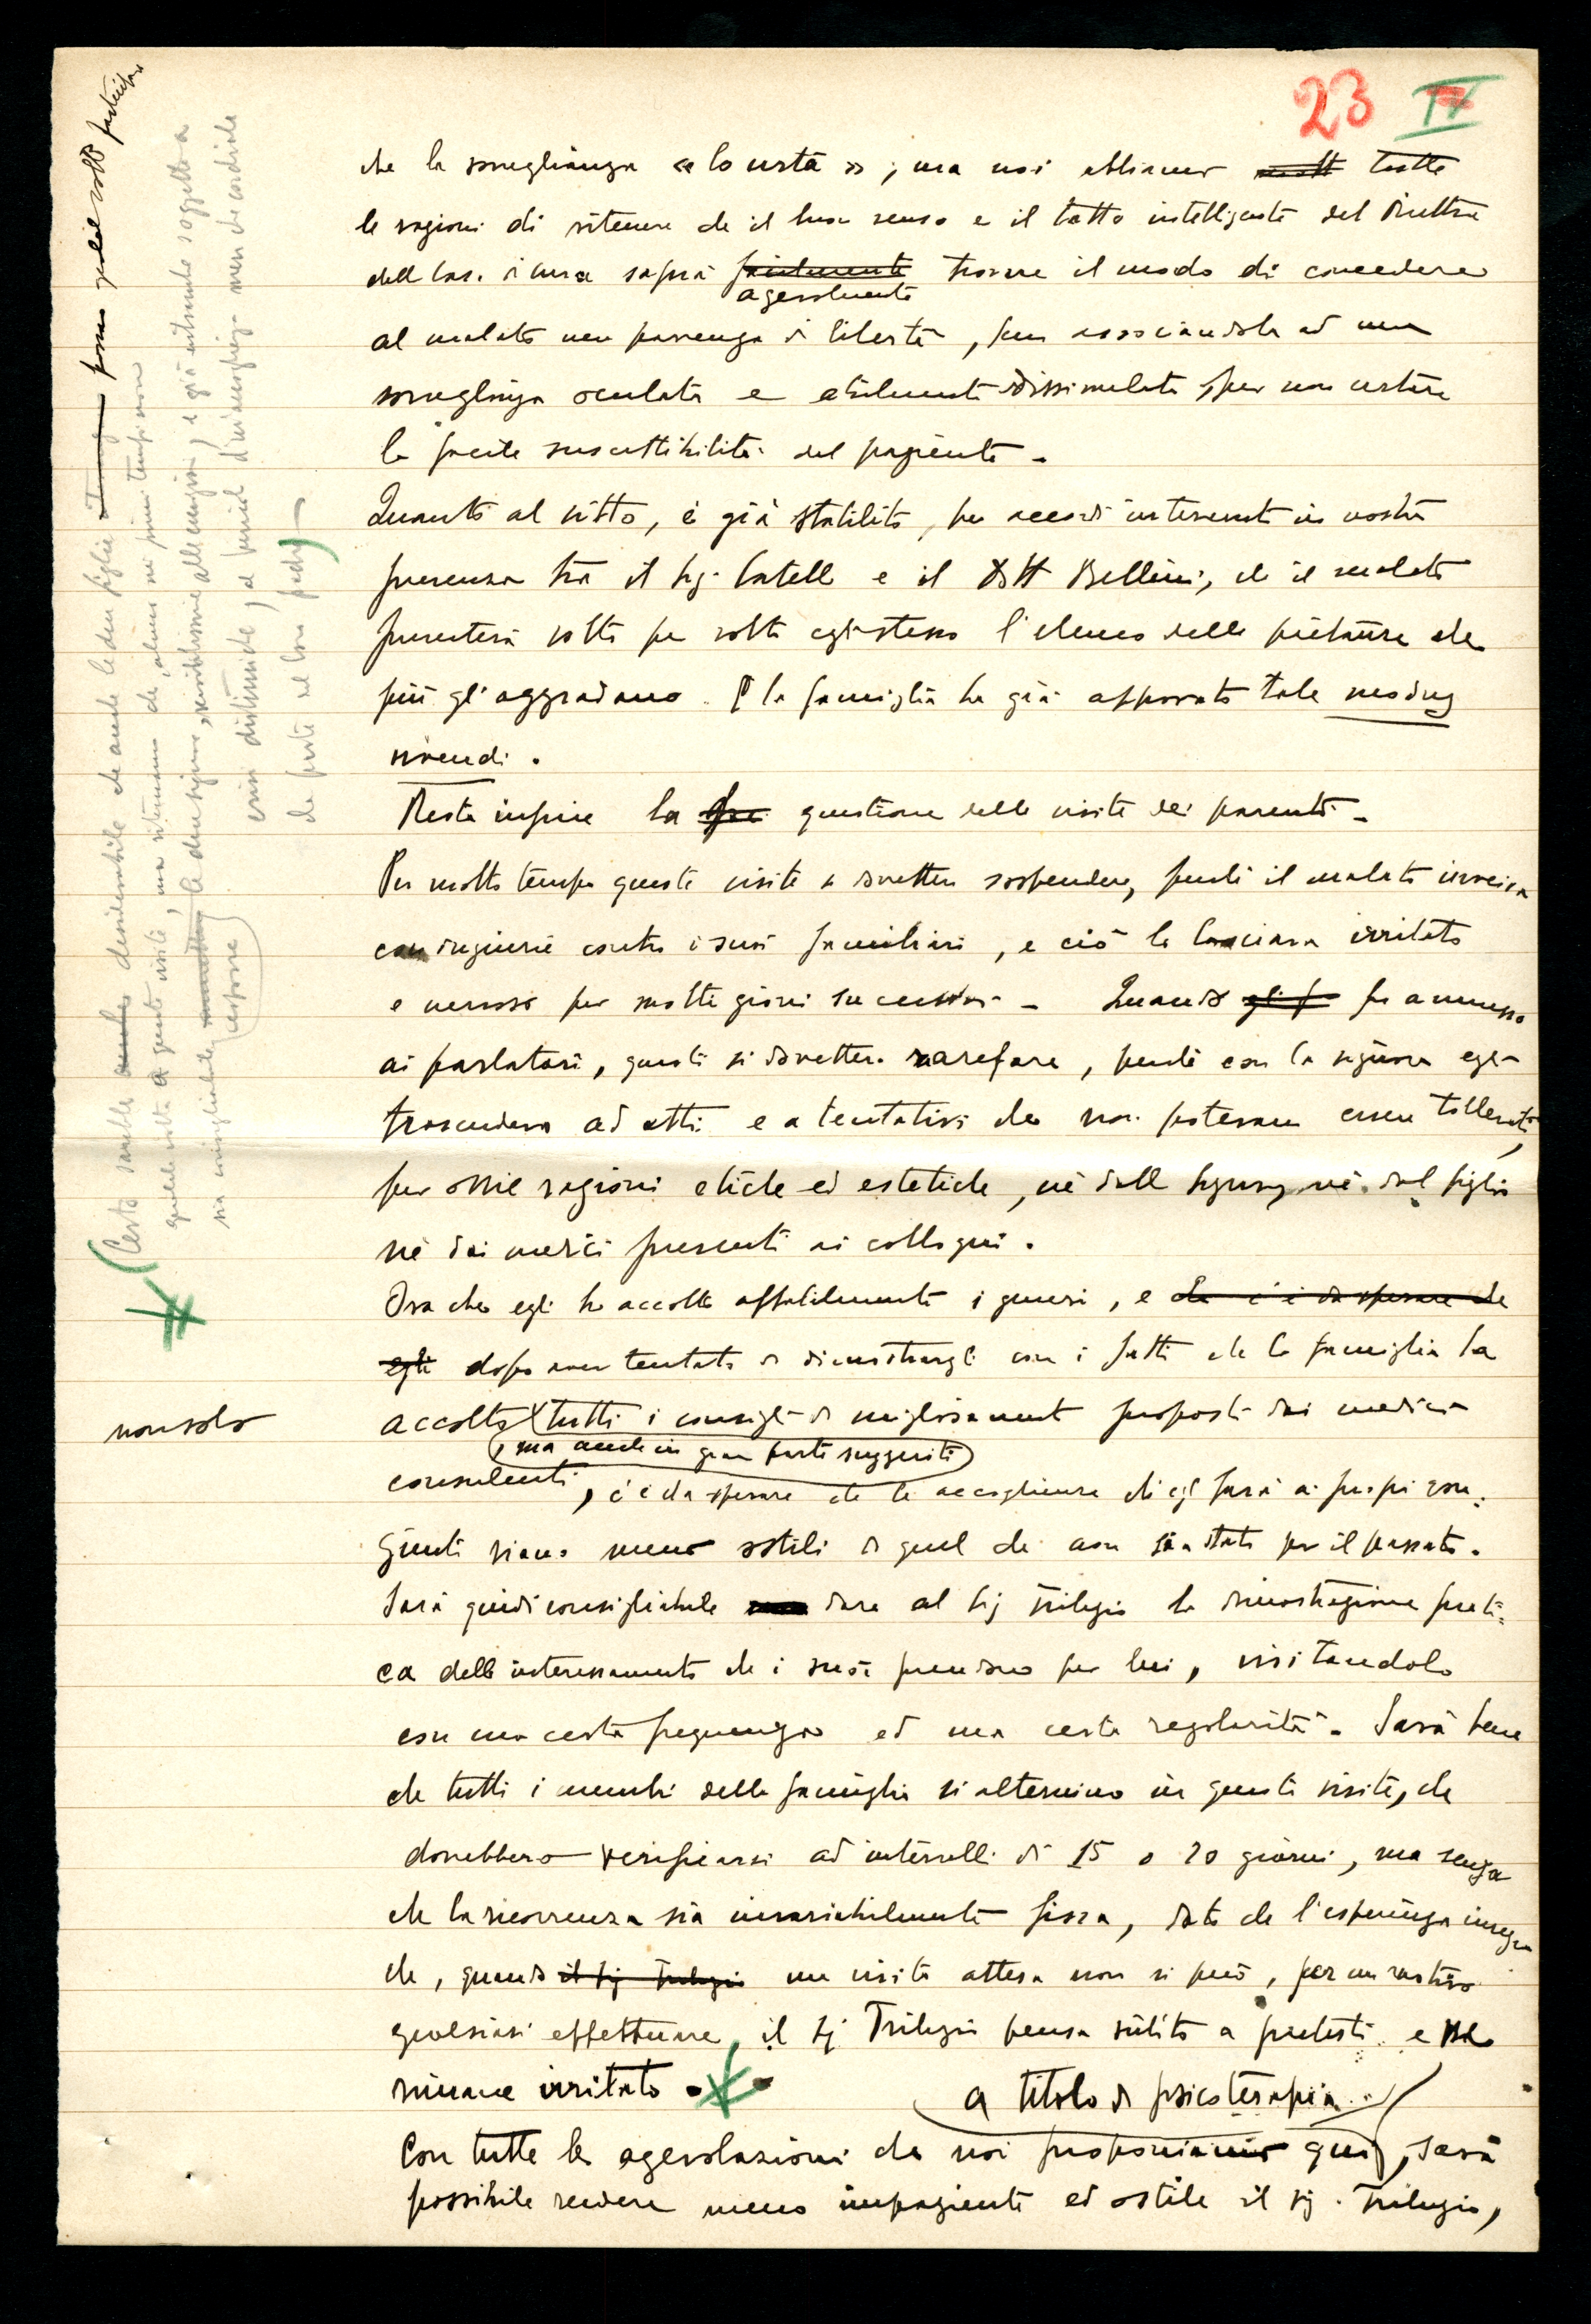 23 IV
che la sorveglianza « lo urta » ; ma noi abbiamo tutte
le ragioni di ritenere che il buon senso e il tatto intelligente del Direttore
della Casa di cura saprà facilmente trovare il modo di concedere
agevolmente
al malato una parvenza di libertà, pur associandola ad una
sorveglianza oculata e abilmente dissimulata, per non urtare
la facile suscettibilità del paziente.
Quanto al vitto, è già stabilito, per accordi intervenuti in nostra
presenza tra il Sig. Catelli e il Dott Bellini, che il malato
presenterà volta per volta egli stesso l'elenco delle pietanze che
più gli aggradano. E la famiglia ha già approvato tale modus
vivendi.
Resta infine la questione delle visite dei parenti -
Per molto tempo queste visite si dovettero sospendere, perché il malato inveiva
con ingiurie contro i suoi familiari, e ciò lo lasciava irritato
e nervoso per molti giorni successivi - Quando fu ammesso
ai parlatori, questi si dovettero rarefare, perché con la signora egli
trascendeva ad atti e a tentativi che non potevano essere tollerati,
per ovvie ragioni etiche ed estetiche, nè dalla Signora, nè dal figlio
nè dai medici presenti ai colloqui.
Ora che egli ha accolto affabilmente i generi, e che c'è da sperare che
egli dopo aver tentato di dimostrargli con i fatti che la famiglia ha
non solo
accolto tutti i consigli di miglioramento proposti dai medici
, ma anche in gran parte suggeriti
consulenti, c'è da sperare che le accoglienze che egli farà ai propri con=
giunti siano meno ostili di quel che non sia stato per il passato.
Sarà quindi consigliabile dare al Sig Trilugio la dimostrazione prati=
ca dello interessamento che i suoi prendono per lui, visitandolo
con una certa frequenza ed una certa regolarità. Sarà bene
che tutti i membri della famiglia si alternino in queste visite, che
dovrebbero verificarsi ad intervalli di 15 o 20 giorni, ma senza
che la ricorrenza sia invariabilmente fissa, dato che l'esperienza insegna
che, quando il Sig una visita attesa non si può, per un motivo
qualsiasi effettuare, il Sig Trilugio pensa subito a pretesti e
rimane irritato.
a titolo di psicoterapia
Con tutte le agevolazioni che noi proponiamo qui, sarà
possibile rendere meno impaziente ed ostile il sig. Trilugio,
(Certo sarebbe anche desiderabile che anche le due figlie potessero qualche volta partecipare
qualche volta a queste visite, ma riteniamo che, almeno nei primi tempi non
sia consigliabile le due signore, sensibilissime alle emozioni, e già entrambe soggette a
esporre
crisi distimiche, al pericolo d'un'accoglienza men che cordiale
da parte del loro padre)